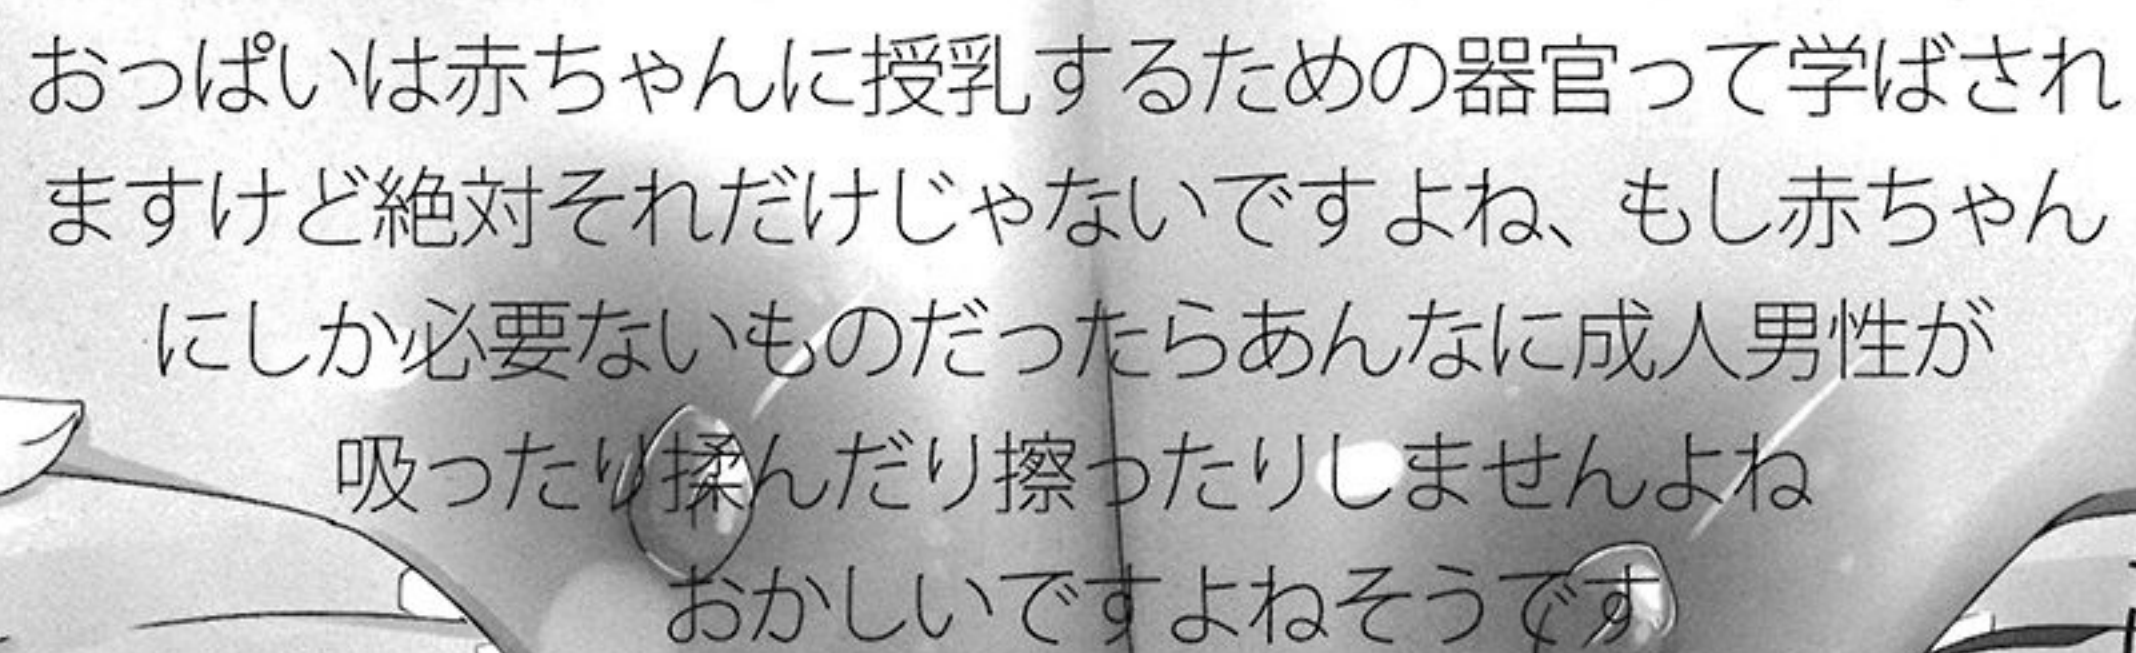 おっぱいは赤ちゃんに授乳するための器官って学ばされ
ますけど絶対それだけじゃないですよね、もし赤ちゃん
にしか必要ないものだったらあんなに成人男性が
吸ったり揉んだり擦ったりしませんよね
おかしいですよねそうです